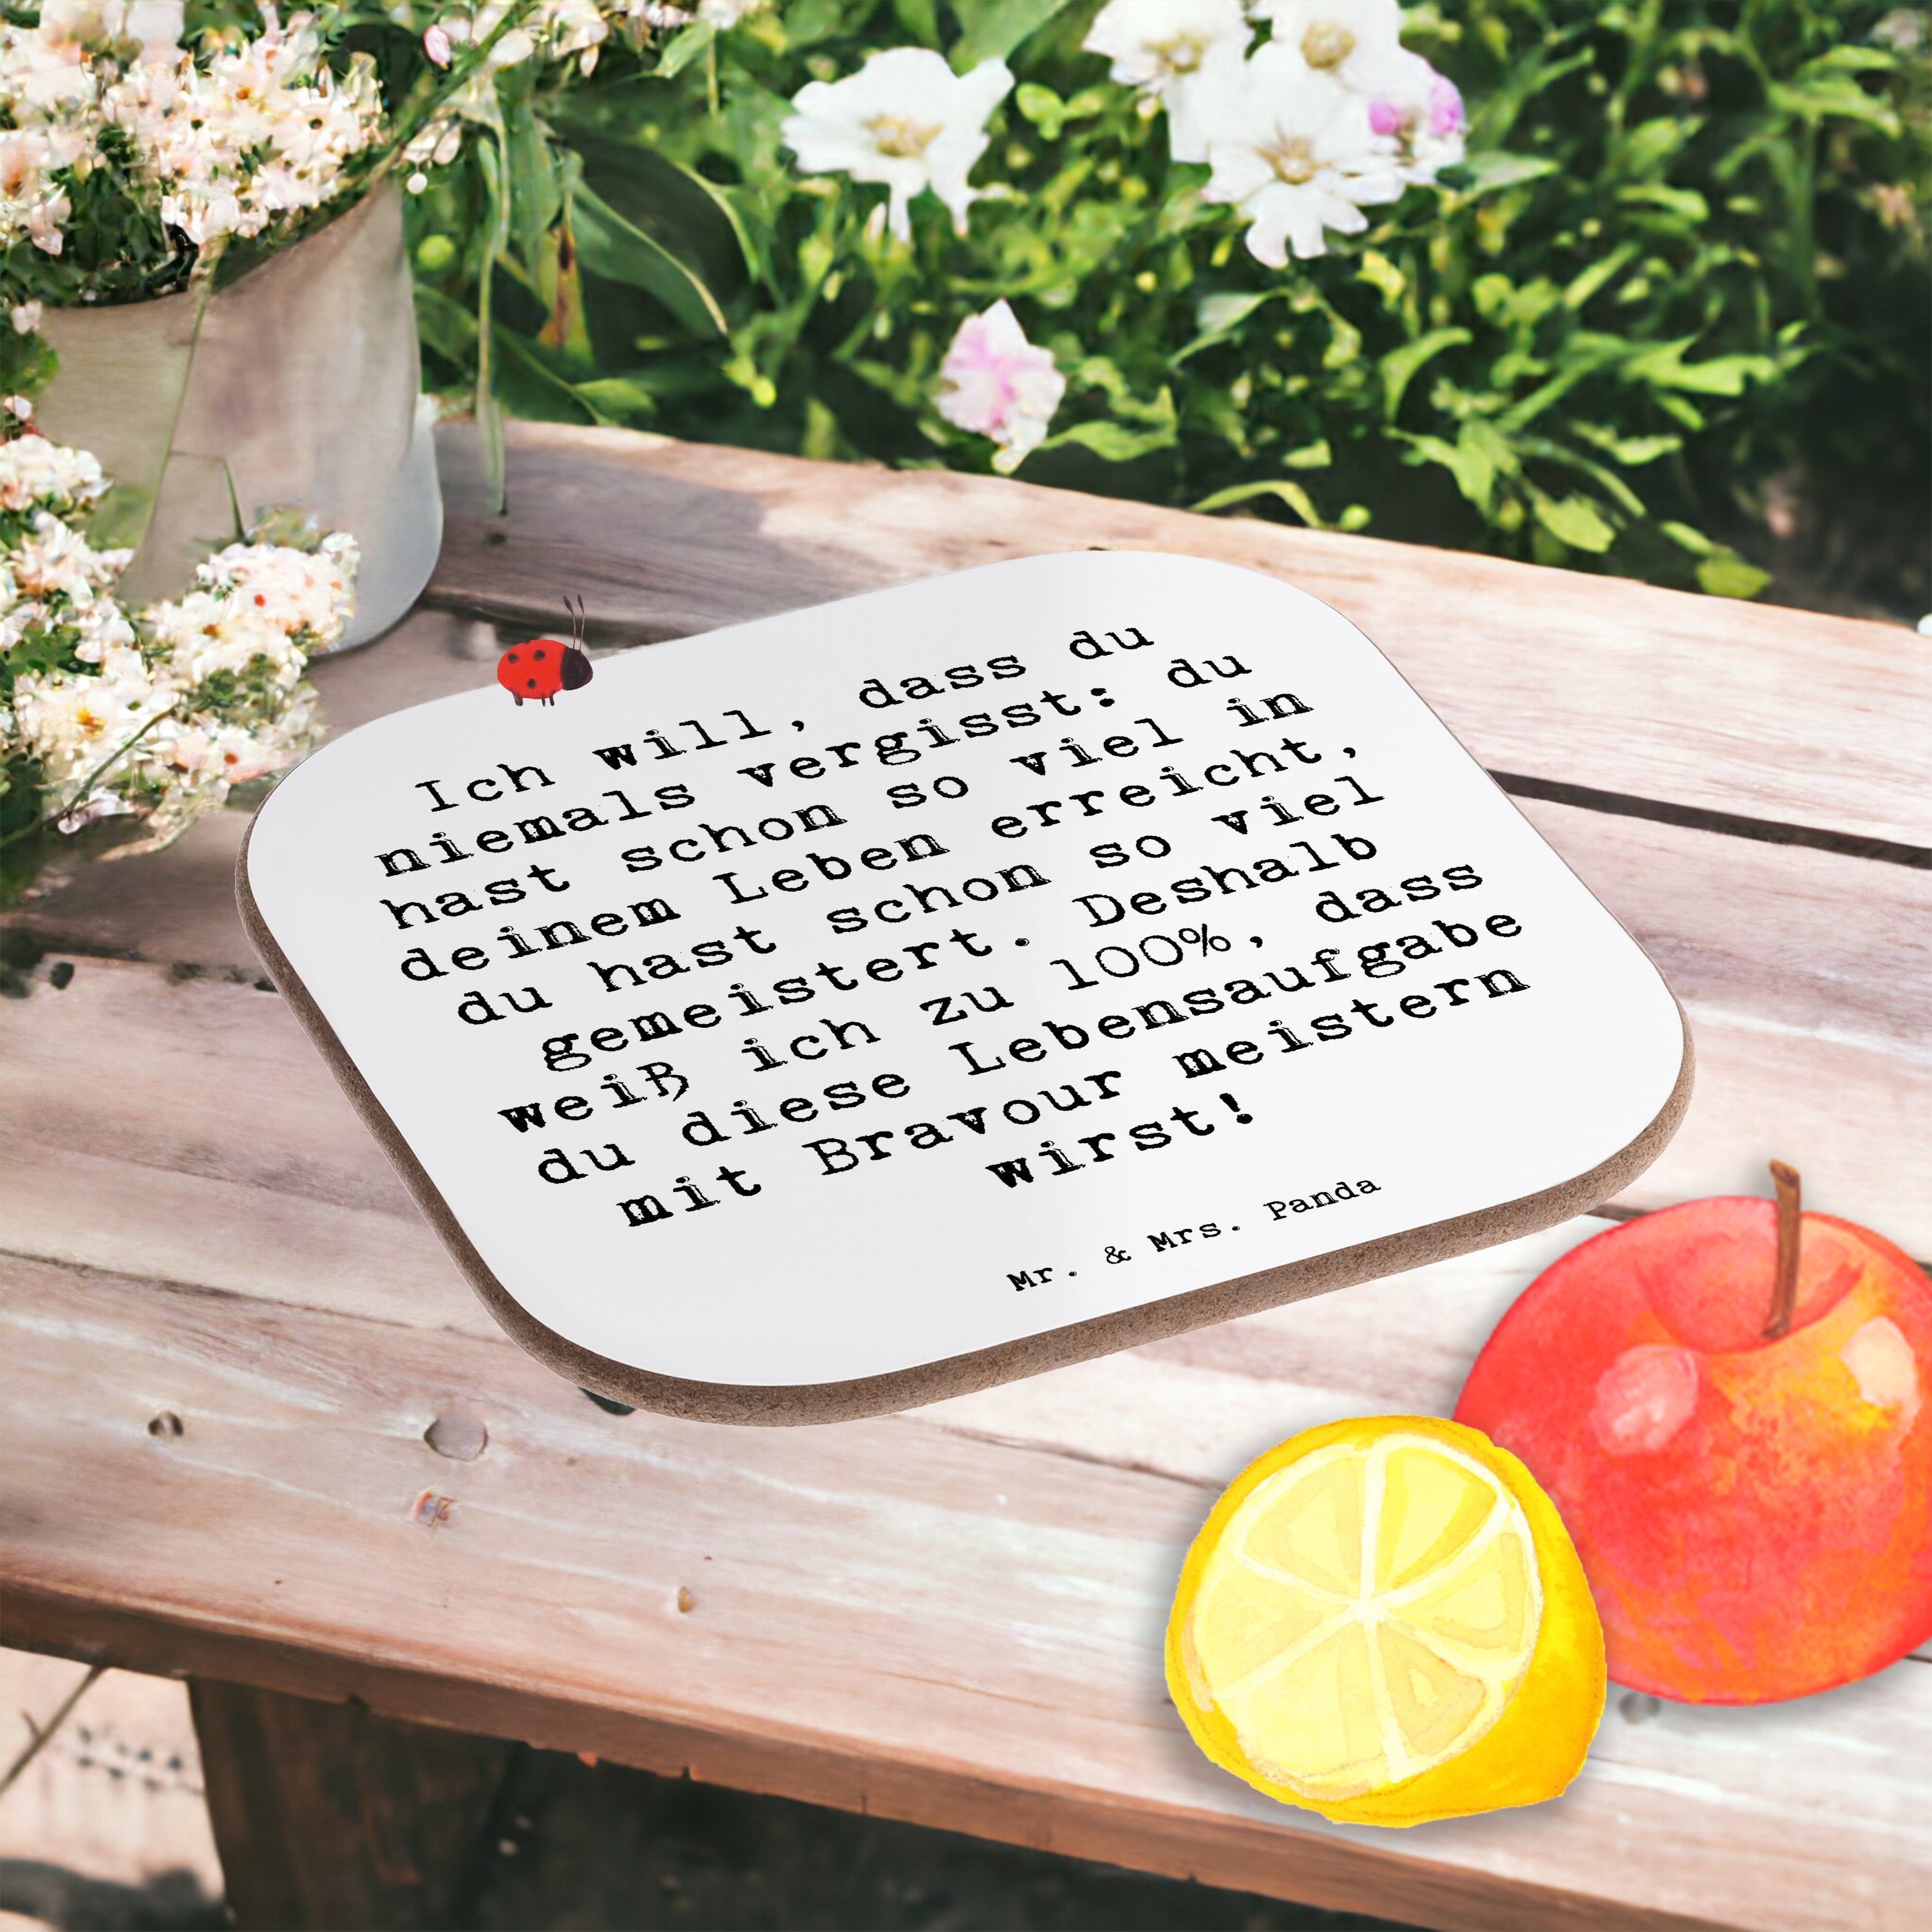 Ich will, dass du
niemals vergisst: du
hast schon so viel in
deinem Leben erreicht,
du hast schon so viel
gemeistert. Deshalb
weiß ich zu 100%, dass
du diese Lebensaufgabe
mit Bravour meistern
wirst!
Mr. & Mrs. Panda